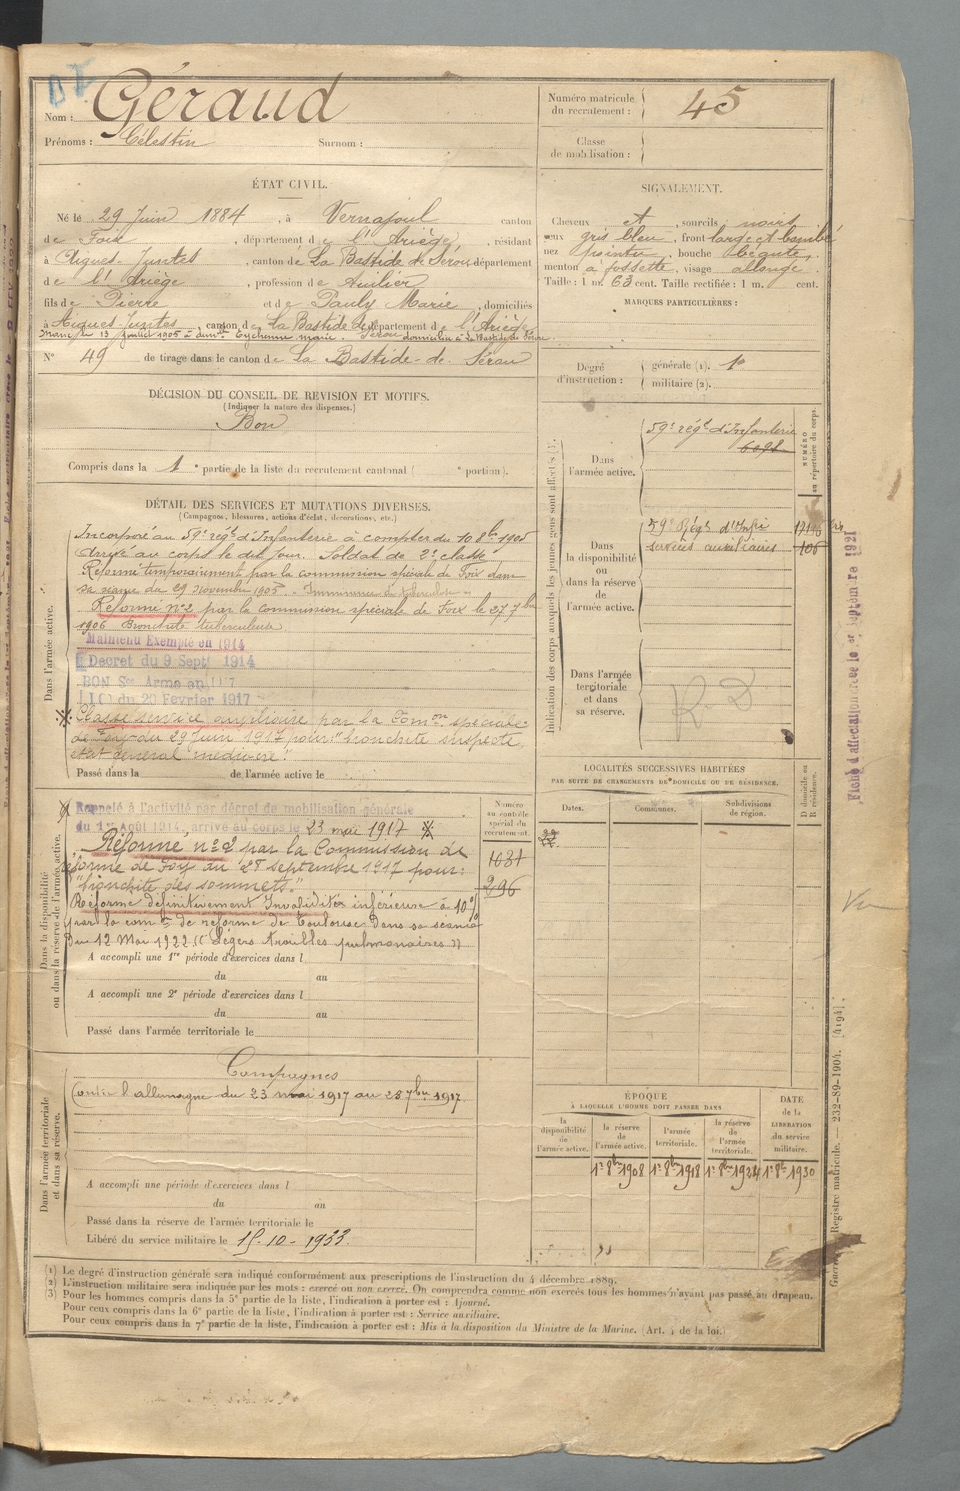 Nom : Géraud
Prénoms : Célestin Surnom :
Numéro matricule du recrutement : 45
Classe de mobilisation :
ÉTAT CIVIL.
Né le 29 Juin 1884, à Vernajoul canton
de Foix, département de l'Ariège, résidant
à Aigues-Juntes, canton de La Bastide de Sérou département
de l'Ariège, profession de
fils de Pierre et de Pauly Marie, domiciliés
à Aigues-Juntes, canton de La Bastide de Sérou département de l'Ariège
Marié le 13 Juillet 1905 à Eychenne marie. domicilié à La Bastide de Sérou
N° 49 de tirage dans le canton de La Bastide-de-Sérou
SIGNALEMENT.
Cheveux et, sourcils noirs
yeux gris bleu, front large et bombé
nez pointu, bouche béante,
menton à fossette, visage allongé.
Taille : 1 m. 63 cent. Taille rectifiée : 1 m. cent.
MARQUES PARTICULIÈRES :
Degré d'instruction :
générale (1). 1
militaire (2).
DÉCISION DU CONSEIL DE REVISION ET MOTIFS.
(Indiquer la nature des dispenses.)
Bon
Compris dans la 1e partie de la liste du recrutement cantonal ( e portion).
DÉTAIL DES SERVICES ET MUTATIONS DIVERSES.
(Campagnes, blessures, actions d'éclat, décorations, etc.)
Dans l'armée active.
Incorporé au 59e régt d'Infanterie à compter du 10 8bre 1905
Arrivé au corps le dit jour. Soldat de 2e classe
Réformé temporairement par la commission spéciale de Foix dans
sa séance du 29 novembre 1905
Réformé n°2 par la Commission spéciale de Foix le 27 7bre
1906 Bronchite tuberculeuse
Maintenu Exempté en 1914
Décret du 9 Septe 1914
BON Sce Armé en 1917
Loi du 20 Février 1917
Classé service auxiliaire par la Comon spéciale
de Foix du 29 Juin 1917 pour : "bronchite suspecte,
état général médiocre"
Passé dans la de l'armée active le
Dans la disponibilité ou dans la réserve de l'armée active.
Rappelé à l'activité par décret de mobilisation générale
du 1er Août 1914, arrivé au corps le 23 mai 1917
Réformé n°2 par la Commission de
réforme de Foix du 28 septembre 1917 pour :
"bronchite des sommets."
Réformé définitivement Invalidité inférieure à 10%
par la comon de réforme de Toulouse dans sa séance
du 12 Mai 1922 (( Légers troubles pulmonaires ))
A accompli une 1re période d'exercices dans l
du au
A accompli une 2e période d'exercices dans l
du au
Passé dans l'armée territoriale le
Numéro au contrôle spécial du recrutement.
1031
296
Dans l'armée territoriale et dans sa réserve.
Campagnes
Contre l'allemagne du 23 mai 1917 au 28 7bre 1917
A accompli une période d'exercices dans l
du au
Passé dans la réserve de l'armée territoriale le
Libéré du service militaire le 15-10-1933.
Indication des corps auxquels les jeunes gens sont affectés (3).
NUMÉRO au répertoire du corps.
Dans l'armée active.
59e régt d'Infanterie
6098
Dans la disponibilité ou dans la réserve de l'armée active.
59e Régt d'Infie
services auxiliaires
106
Dans l'armée territoriale et dans sa réserve.
R.D
LOCALITÉS SUCCESSIVES HABITÉES
PAR SUITE DE CHANGEMENTS DE DOMICILE OU DE RÉSIDENCE.
Dates. Communes. Subdivisions de région. D domicile ou R résidence.
ÉPOQUE
À LAQUELLE L'HOMME DOIT PASSER DANS
la disponibilité de l'armée active.
la réserve de l'armée active.
l'armée territoriale.
la réserve de l'armée territoriale.
DATE de la LIBÉRATION du service militaire.
1er 8bre 1908 1er 8bre 1918 1er 8bre 1924 1er 8bre 1930
Fiche d'affectation créée le 1er Septembre 1921
Registre matricule. — 232-89-1904. [4194].
(1) Le degré d'instruction générale sera indiqué conformément aux prescriptions de l'instruction du 4 décembre 1889.
(2) L'instruction militaire sera indiquée par les mots : exercé ou non exercé. On comprendra comme non exercés tous les hommes n'ayant pas passé au drapeau.
(3) Pour les hommes compris dans la 5e partie de la liste, l'indication à porter est : Ajourné.
Pour ceux compris dans la 6e partie de la liste, l'indication à porter est : Service auxiliaire.
Pour ceux compris dans la 7e partie de la liste, l'indication à porter est : Mis à la disposition du Ministre de la Marine. (Art. 4 de la loi.)